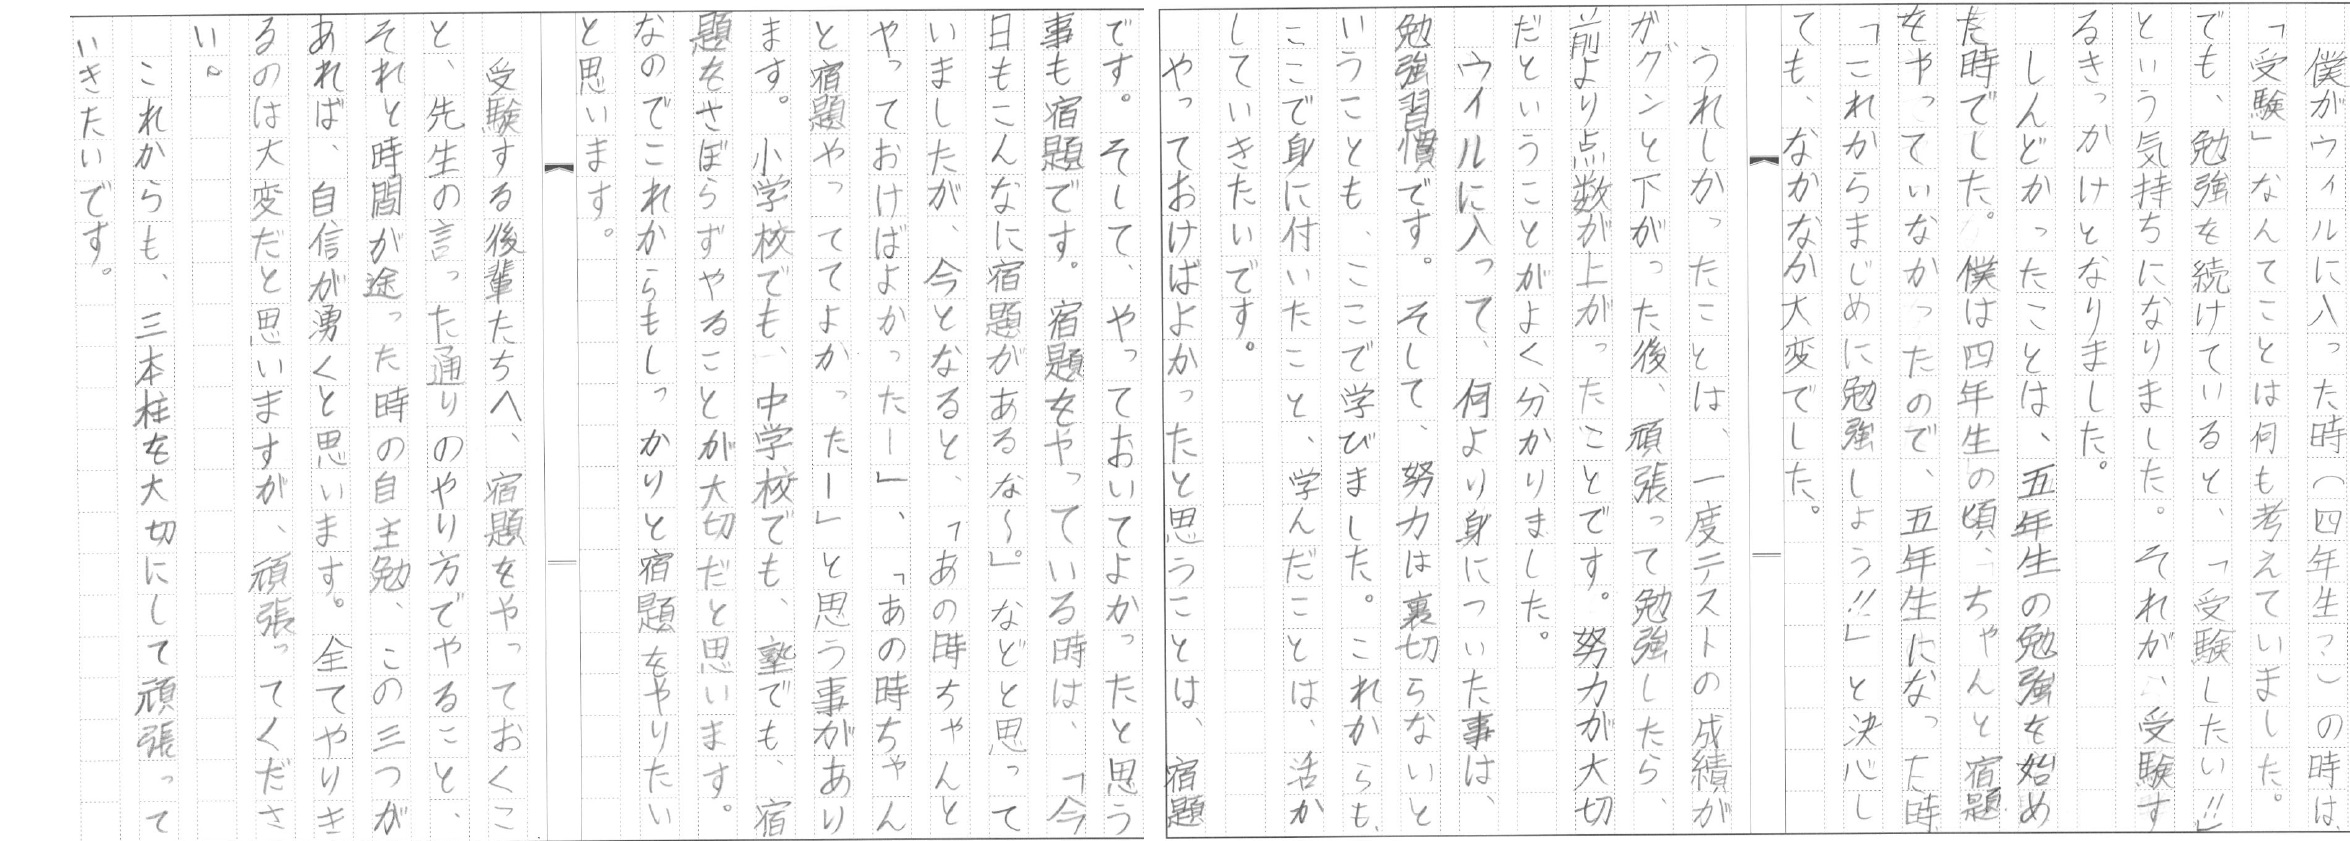 僕がウィルに入った時（四年生？）の時は、
「受験」なんてことは何も考えていました。
でも、勉強を続けていると、「受験したい!!」
という気持ちになりました。それが、受験す
るきっかけとなりました。
しんどかったことは、五年生の勉強を始め
た時でした。僕は四年生の頃、ちゃんと宿題
をやっていなかったので、五年生になった時
「これからまじめに勉強しょう!!」と決心し
ても、なかなか大変でした。
うれしかったことは、一度テストの成績が
ガクンと下がった後、頑張って勉強したら、
前より点数が上がったことです。努力が大切
だということがよく分かりました。
ウィルに入って、何より身についた事は、
勉強習慣です。そして、努力は裏切らないと
いうことも、ここで学びました。これからも、
ここで身に付いたこと、学んだことは、活か
していきたいです。
やっておけばよかったと思うことは、宿題
です。そして、やっておいてよかったと思う
事も宿題です。宿題をやっている時は、「今
日もこんなに宿題があるな〜。」などと思って
いましたが、今となると、「あの時ちゃんと
やっておけばよかったー」、「あの時ちゃん
と宿題やっててよかったー」と思う事があり
ます。小学校でも、中学校でも、塾でも、宿
題をさぼらずやることが大切だと思います。
なのでこれからもしっかりと宿題をやりたい
と思います。
受験する後輩たちへ、宿題をやっておくこ
と、先生の言った通りのやり方でやること、
それと時間が途った時の自主勉、この三つが
あれば、自信が湧くと思います。全てやりき
るのは大変だと思いますが、頑張ってくださ
い。
これからも、三本柱を大切にして頑張って
いきたいです。